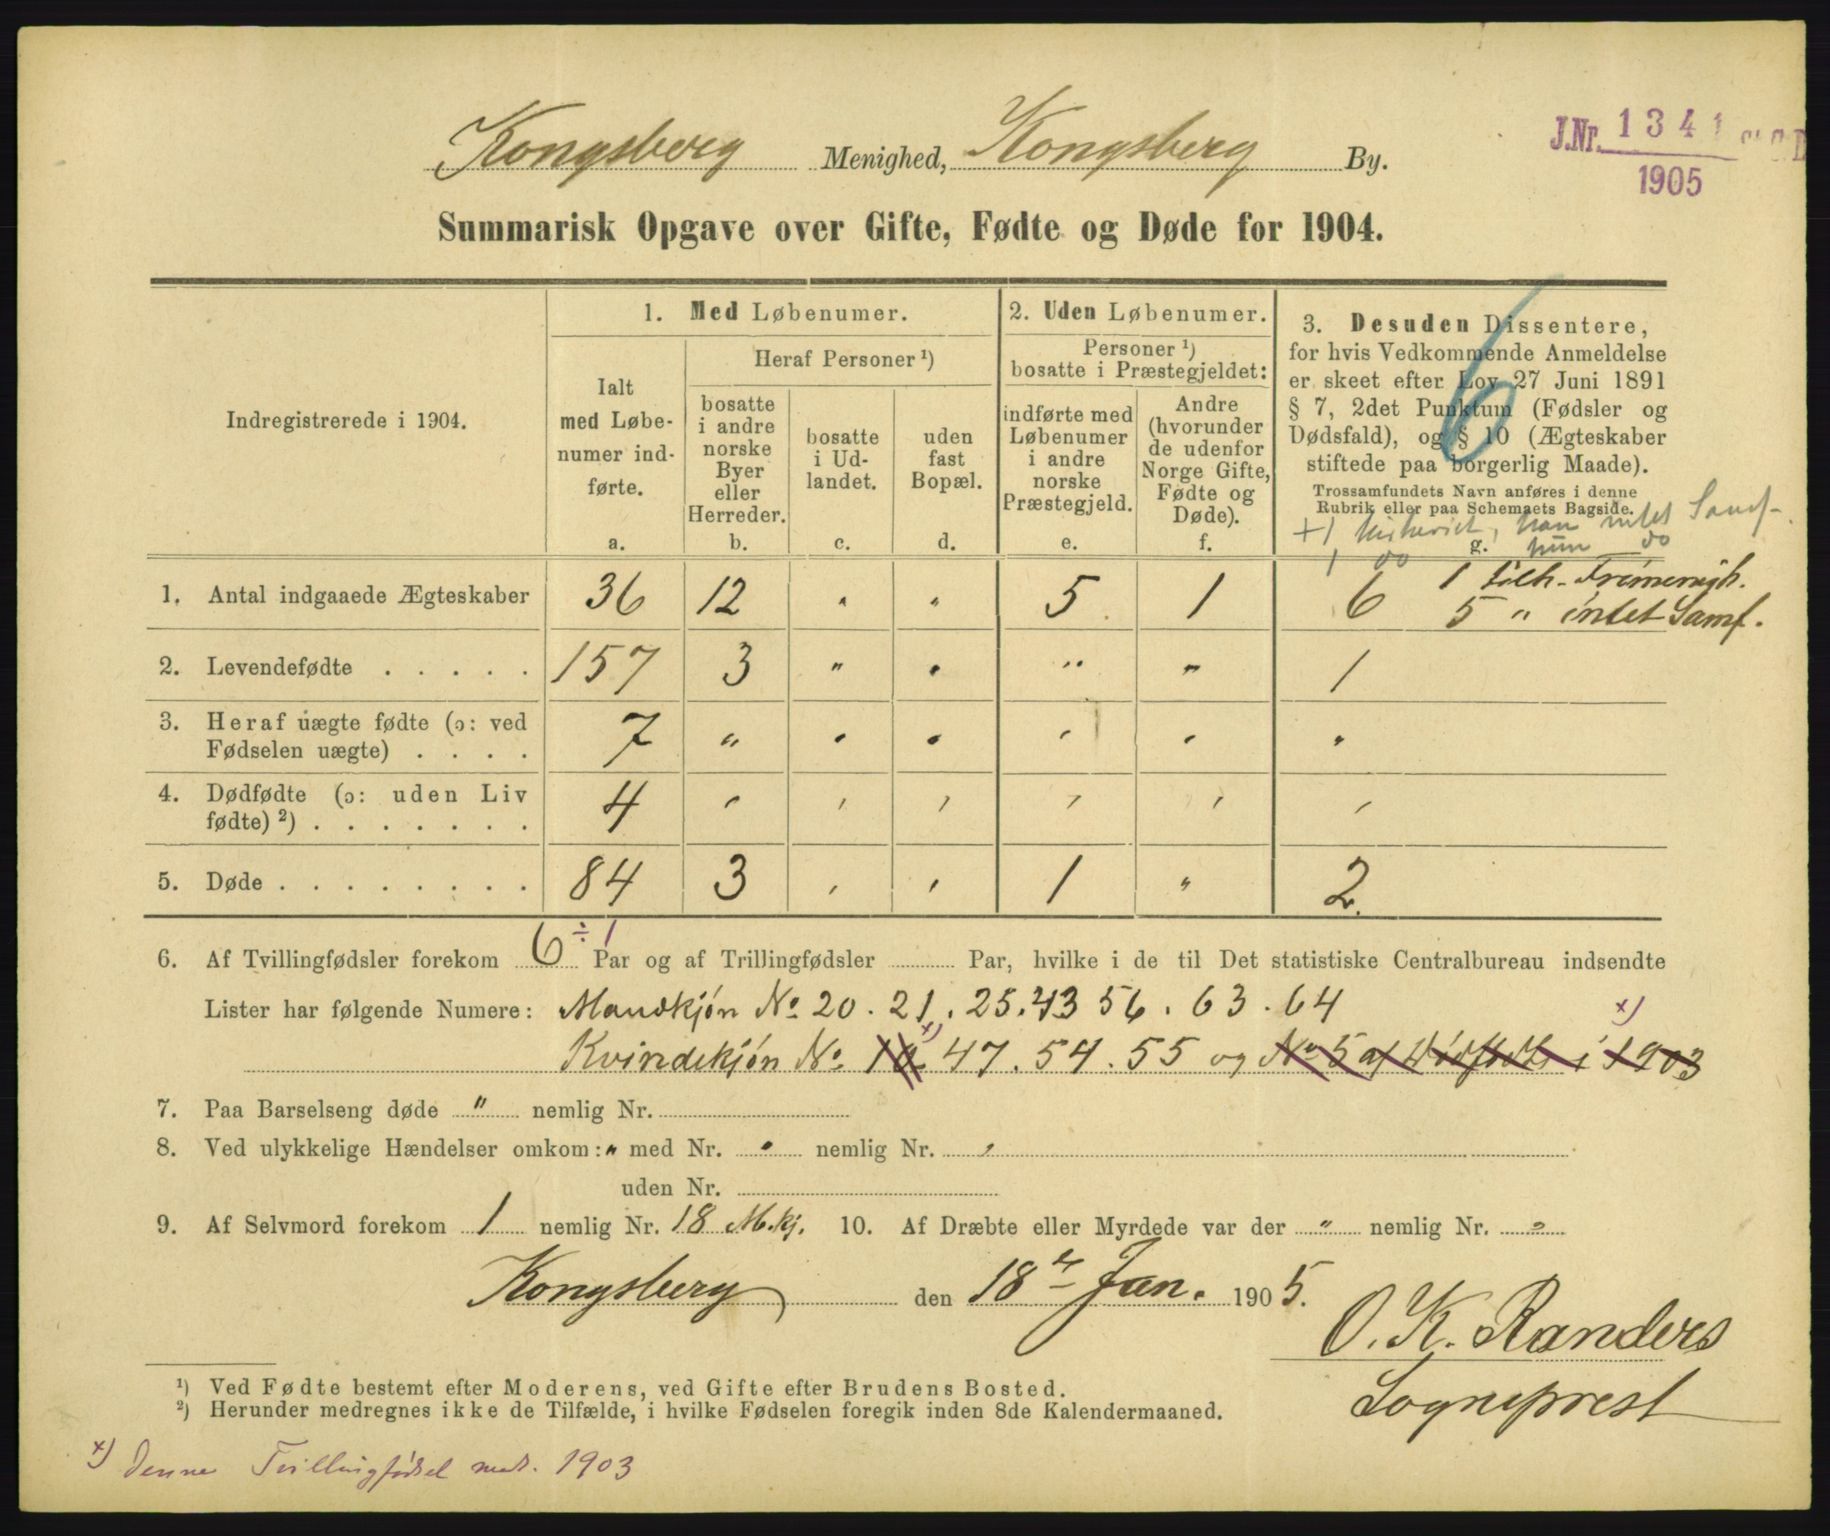 Kongsberg Menighed, Kongsberg By.
J.Nr. 1341
1905
Summarisk Opgave over Gifte, Fødte og Døde for 1904.
Indregistrerede i 1904.
1. Med Løbenumer.
Ialt med Løbe-
numer ind-
førte.
a.
Heraf Personer ¹)
bosatte
i andre
norske
Byer
eller
Herreder.
b.
bosatte
i Ud-
landet.
c.
uden
fast
Bopæl.
d.
2. Uden Løbenumer.
Personer ¹)
bosatte i Præstegjeldet:
indførte med
Løbenumer
i andre
norske
Præstegjeld.
e.
Andre
(hvorunder
de udenfor
Norge Gifte,
Fødte og
Døde).
f.
3. Desuden Dissentere,
for hvis Vedkommende Anmeldelse
er skeet efter Lov 27 Juni 1891
§ 7, 2det Punktum (Fødsler og
Dødsfald), og § 10 (Ægteskaber
stiftede paa borgerlig Maade).
Trossamfundets Navn anføres i denne
Rubrik eller paa Schemaets Bagside.
6
+) han intet Samf.
g.
1 do hun do
1. Antal indgaaede Ægteskaber 36 12 " " 5 1 6 1 tilh. Frimenigh.
5 " intet Samf.
2. Levendefødte . . . . . 157 3 " " " " 1
3. Heraf uægte fødte (ɔ: ved
Fødselen uægte) . . . . 7 " " " " " "
4. Dødfødte (ɔ: uden Liv
fødte) ²) . . . . . . . 4 " " " " " "
5. Døde . . . . . . . . 84 3 " " 1 " 2.
6. Af Tvillingfødsler forekom 6 ÷1 Par og af Trillingfødsler Par, hvilke i de til Det statistiske Centralbureau indsendte
Lister har følgende Numere: Mandkjön No 20. 21. 25. 43 56. 63. 64
Kvindekjön No 10 x) 47. 54. 55 og No 5 af Dödfödte i 1903 x)
7. Paa Barselseng døde " nemlig Nr.
8. Ved ulykkelige Hændelser omkom: " med Nr. " nemlig Nr. "
uden Nr.
9. Af Selvmord forekom 1 nemlig Nr. 18 M.kj. 10. Af Dræbte eller Myrdede var der " nemlig Nr. "
Kongsberg den 18de Jan. 1905.
O. K. Randers
Sogneprest
¹) Ved Fødte bestemt efter Moderens, ved Gifte efter Brudens Bosted.
²) Herunder medregnes ikke de Tilfælde, i hvilke Fødselen foregik inden 8de Kalendermaaned.
x) Denne Tvillingfødsel 1903